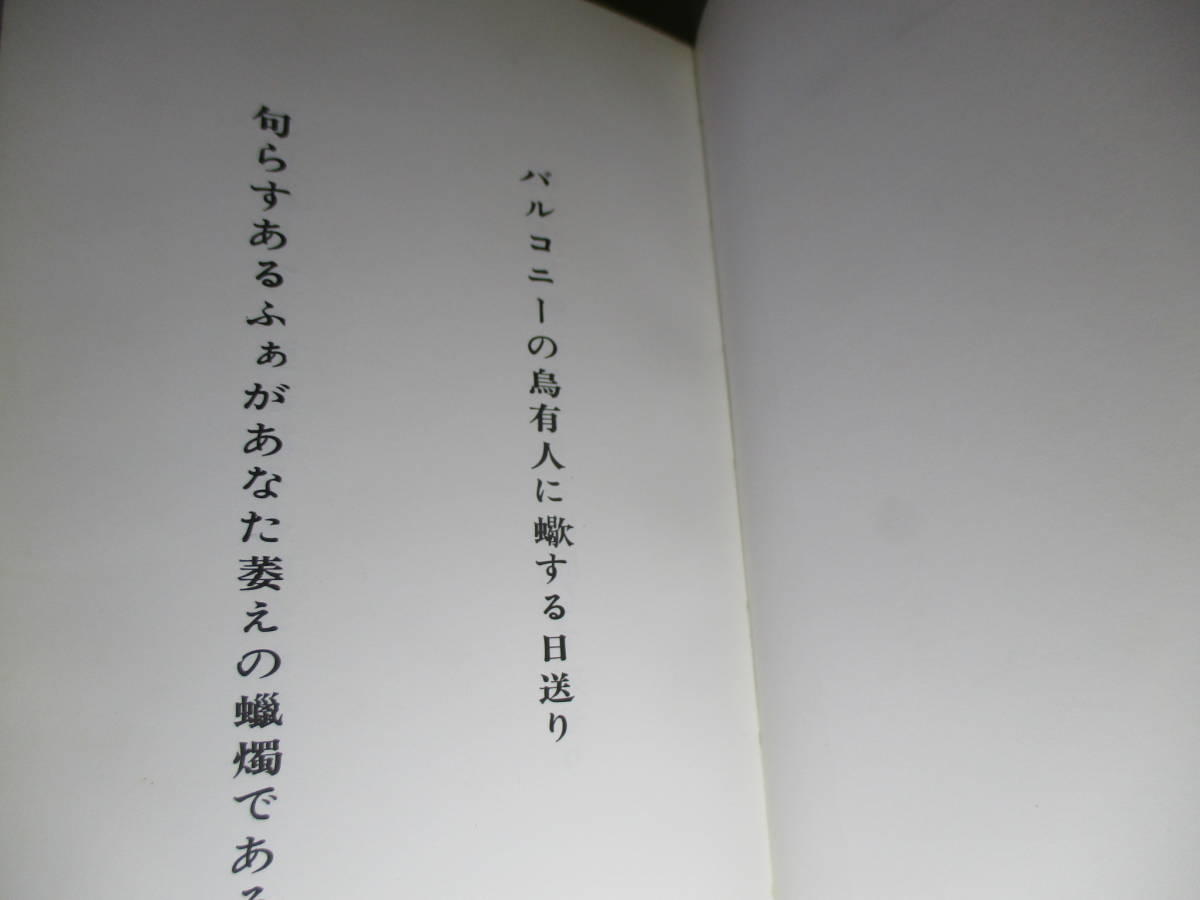 バルコニーの烏有人に蠍する日送り
句らすあるふぁがあなた萎えの蠟燭である